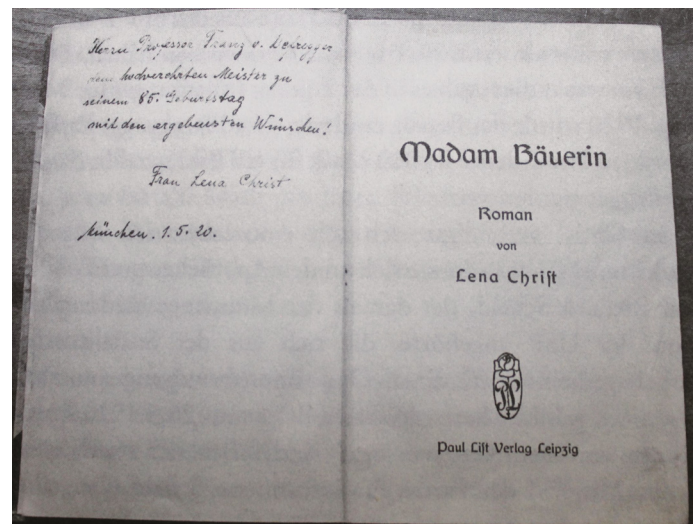 Herrn Professor Franz v. Defregger
dem hochverehrten Meister zu
seinem 85. Geburtstag
mit den ergebensten Wünschen!
Frau Lena Christ
München. 1.5.20.
Madam Bäuerin
Roman
von
Lena Chriſt
Paul Liſt Verlag Leipzig